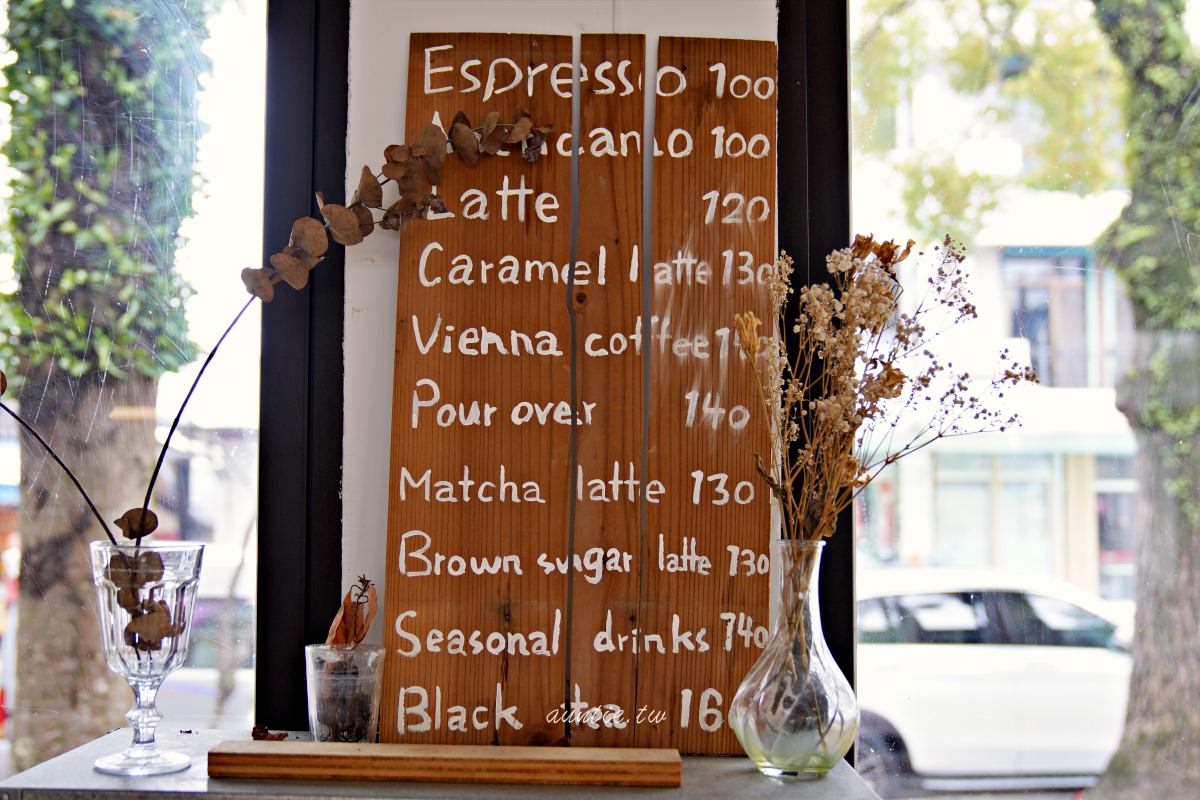 Espresso 100
Americano 100
Latte 120
Caramel latte 130
Vienna coffee
Pour over 140
Matcha latte 130
Brown sugar latte 130
Seasonal drinks 140
Black tea
auntie.tw